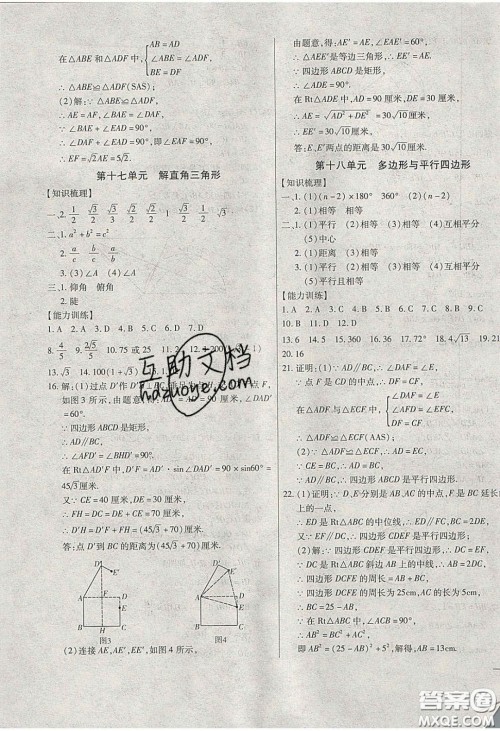 在△ABE和△ADF中,
AB=AD
∠ABE=∠ADF,
BE=DF
∴△ABE≌△ADF(SAS);
(2)解:∵△ABE≌△ADF,
∴AE=AF,∠BAE=∠DAF,
∵∠BAE+∠EAD=90°,
∴∠DAF+∠EAD=90°,
∴∠EAF=90°,
∴EF=√2AE=5√2.
第十七单元 解直角三角形
【知识梳理】
三、1.a²+b²=c²
2. a/c b/c a/b
3.(1)∠A (2)∠A
四、1.仰角 俯角
2.陡
【能力训练】
1.A 2.A 3.D 4.D 5.A 6.D 7.D
8. 4/5 9. 2√5/5 10.75或25
13.√5 14.100(1+√3) 15.
16.解:(1)过点D'作D'H⊥BC
如图3所示,由题意,得AD'=AD=90
∠DAD'=60°.
∵四边形ABCD是矩形,
∴AD∥BC,
∴∠AFD'=∠BHD'=90°.
在Rt△AD'F中,D'F=AD'·sin∠DAD'=90×sin60°=
45√3厘米,
又∵CE=40厘米,DE=30厘米,
∴FH=DC=DE+CE=70厘米,
∴D'H=D'F+FH=(45√3+70)厘米.
答:点D'到BC的距离为(45√3+70)厘米.
D' E' A F D E B H C
图3
D' E' A D E B C
图4
(2)连接AE,AE',EE',如图4所示,
由题意,得:AE'=AE,∠EAE'=60°,
∴△AEE'是等边三角形,
∴EE'=AE.
∵四边形ABCD是矩形,
∴∠ADE=90°.
在Rt△ADE中,AD=90厘米,DE=30厘米,
∴AE=√(AD²+DE²)=30√10厘米,
∴EE'=30√10厘米.
答:E,E'两点的距离是30√10厘米.
第十八单元 多边形与平行四边形
【知识梳理】
一、(1)(n-2)×180° 360° (2)(n-3)
2.(1)相等 (2)相等
二、1.(1)平行 (2)相等 (3)相等 (4)互相平分
(5)中心
2.(1)距离 (2)相等
三、(1)平行 (2)相等 (3)相等 (4)互相平分
(5)平行且相等
【能力训练】
1.B 2.C 3.B 4.D 5.D 6.B 7.A 8.D 9.C
10.D 11.D 12.D
13.6 14.5 15.14 16.4 17.5 18.4√13 19.21
20.16
21.证明:(1)∵AD∥BC,∴∠DAF=∠E,
∵点F是CD的中点,∴DF=CF,
在△ADF与△ECF中,
∠DAF=∠E
∠AFD=∠EFC,
DF=CF
∴△ADF≌△ECF(AAS);
(2)∵△ADF≌△ECF,∴AD=EC,
∵CE=BC,∴AD=BC,
∵AD∥BC,
∴四边形ABCD是平行四边形.
22.(1)证明:∵D、E分别是AB、AC的中点,F是BC延长
上的一点,
∴ED是Rt△ABC的中位线,
∴ED∥FC,BC=2DE,
又EF∥DC,∴四边形CDEF是平行四边形;
(2)解:∵四边形CDEF是平行四边形,
∴DC=EF,
∴四边形DCFE的周长=AB+BC,
∵四边形DCFE的周长为25cm,AC的长5cm,
∴BC=25-AB,
∵在Rt△ABC中,∠ACB=90°,
∴AB²=BC²+AC²,
即AB²=(25-AB)²+5²,解得,AB=13cm.
互助文档
hdzuoye.com
答案圈
MXQE.COM